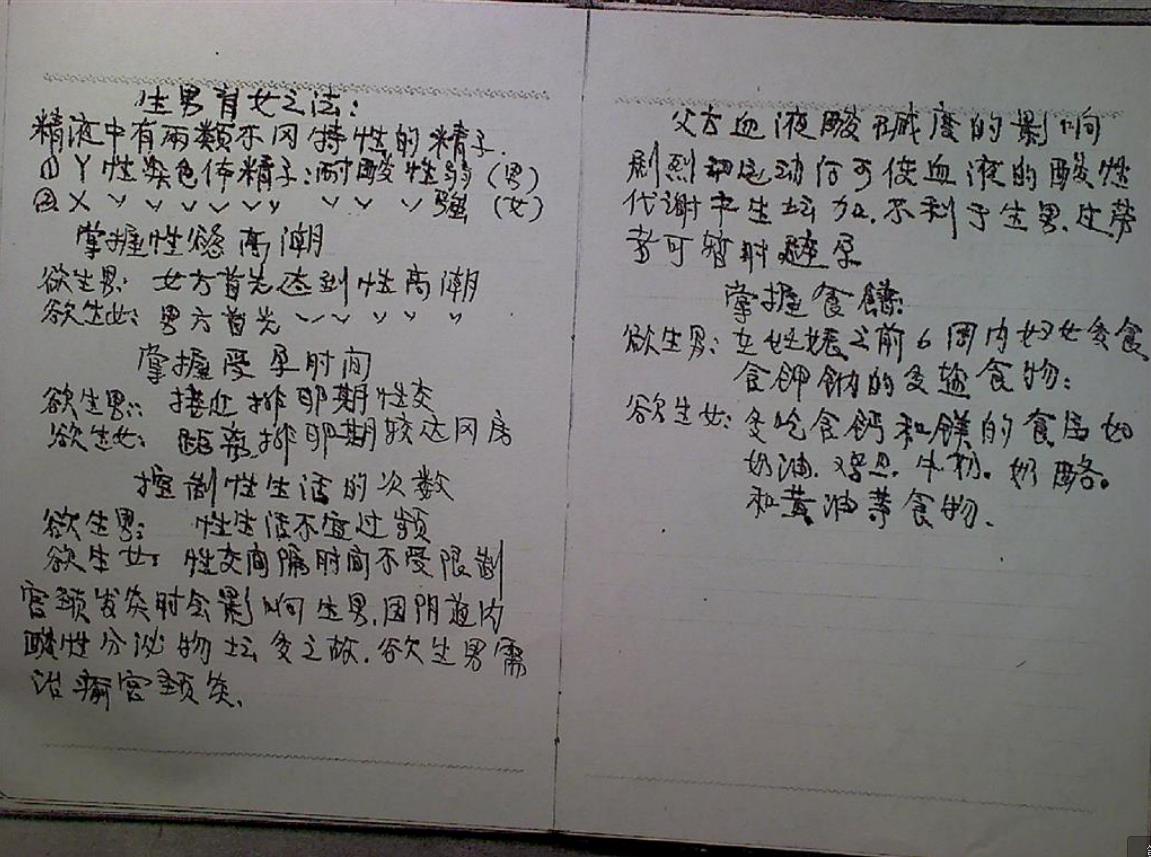 生男育女之法：
精液中有两类不同特性的精子.
① Y 性染色体精子：耐酸性弱（男）
② X 〃 〃 〃 〃 〃 〃 〃 〃 〃 强（女）
掌握性慾高潮
欲生男：女方首先达到性高潮
欲生女：男方首先 〃 〃 〃 〃 〃
掌握受孕时间
欲生男：接近排卵期性交
欲生女：距离排卵期较远同房
控制性生活的次数
欲生男：性生活不宜过频
欲生女：性交间隔时间不受限制
宫颈发炎时会影响生男.因阴道内
酸性分泌物增多之故.欲生男需
治瘉宫颈炎.
父方血液酸碱度的影响
剧烈运动后可使血液的酸性
代谢产生增加.不利于生男.
者可暂时避孕
掌握食饍：
欲生男：在妊娠之前6周内妇女多食
含钾钠的多 食物；
欲生女：多吃含钙和镁的食 如
奶油. 牛奶。奶酪。
和黄油等食物.